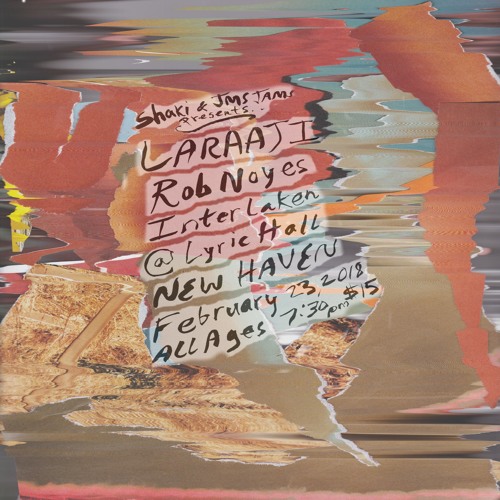 Shaki & JMS JAMS
Presents...
LARAAJI
Rob Noyes
InterLaken
@ Lyric Hall
NEW HAVEN
February 23, 2018
ALL Ages 7:30pm $15